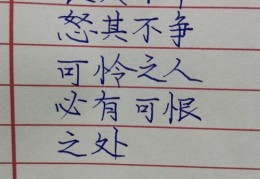 怒其不争
可怜之人
必有可恨
之处